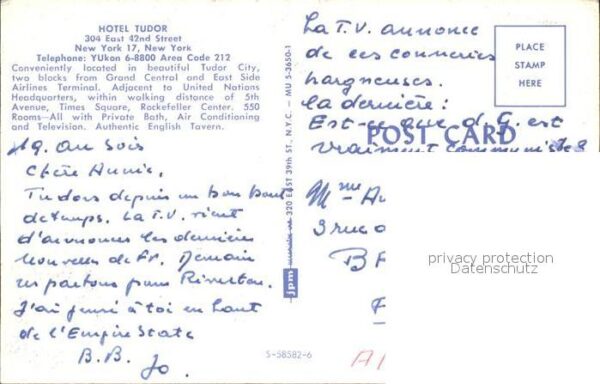 HOTEL TUDOR
304 East 42nd Street
New York 17, New York
Telephone: YUkon 6-8800 Area Code 212
Conveniently located in beautiful Tudor City,
two blocks from Grand Central and East Side
Airlines Terminal. Adjacent to United Nations
Headquarters, within walking distance of 5th
Avenue, Times Square, Rockefeller Center. 550
Rooms—All with Private Bath, Air Conditioning
and Television. Authentic English Tavern.
19. au soir
Chère Annie,
Tu dors depuis un bon bout
de temps. La T.V. vient
d'annoncer les dernières
nouvelles de Fr. Demain
nous partons pour Riverton.
J'ai pensé à toi en haut
de l'Empire State
B.B. Jo.
S-58582-6
jpm
320 EAST 39th ST., N.Y.C. — MU 5-3650-1
La T.V. annonce
de ces conneries
hargneuses.
La dernière:
Est-ce que d. G. est
vraiment communiste?
POST CARD
PLACE
STAMP
HERE
Mme
3 rue
privacy protection
Datenschutz